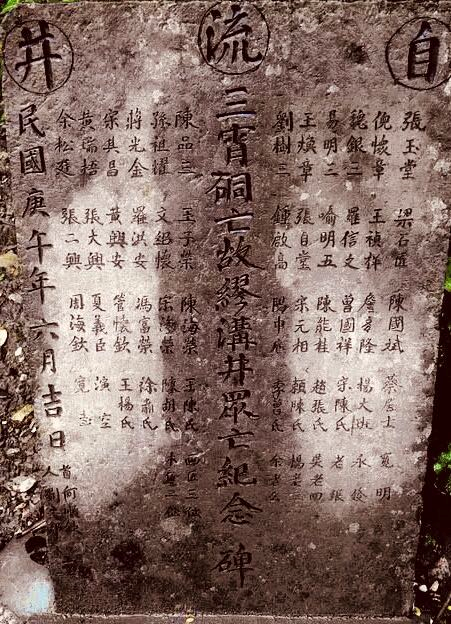 自流井
張玉堂 陳國斌 蔡居士 寬明
倪章 王禎祥 隆 楊大 永
魏銀二 羅信之 曾國祥 宋陳氏 老張
易明二 喻明五 陳能桂 趙張氏 吳老四
王煥章 張自堂 宋元相 顏陳氏 楊老三
劉樹三 鍾啟高 氏 余老
三霄硐亡故繆溝井眾亡紀念碑
陳品三 王子榮 陳海榮 王陳氏
孫祖耀 文紹懷 宋榮 陳胡氏
蔣光金 羅洪安 馮富榮 徐氏
宋其昌 黃興安 管懷欽 王楊氏
黃瑞梧 張大興 夏義臣 演空
余松廷 張二興 周海欽 寬
民國庚午年六月吉日
首人 何 劉